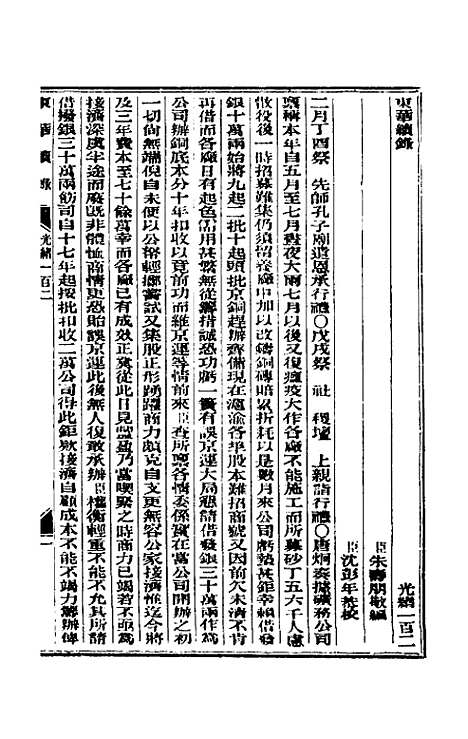 東華續錄
光緒一百二
臣朱壽朋敬編
臣沈彭年恭校
二月丁酉祭　先師孔子廟遣恩承行禮○戊戌祭　社　稷壇　上親詣行禮○唐炯奏據礦務公司
稟稱本年自五月至七月晝夜大雨七月以後又復瘟疫大作各廠不能施工而所募砂丁五六千人慮
散役後一時招募難集仍須留養廠中加以改鑄銅磚賠累折耗以是數月來公司虧墊甚鉅幸賴借發
銀十萬兩始將九起二批十起頭批京銅趕辦齊備現在滬渝各华股本難招商號又因前欠未清不肯
再借而各廠日有起色需用甚繁無從籌措誠恐功虧一簣有誤京運大局懇請借發銀三十萬兩作為
公司辦銅底本分十年扣收以竟前功而維京運等情前來臣查所稟各情委係實在當公司開辦之初
一切尚無端倪自未便以公帑輕擲嘗試又集股正形踴躍商力頗克自支更無容公家接濟維迄今將
及三年費本至七十餘萬幸而各廠已有成效正冀從此日見豐盈乃當喫緊之時商力已竭若不亟為
接濟深虞半途而廢既非體恤商情更恐貽誤京運此後無人復敢承辦臣權衡輕重不能不允其所請
借撥銀三十萬兩飭司自十七年起按批扣收二萬公司得此鉅款接濟自顧成本不能不竭力籌辦俾
東華續錄　光緒一百二　一